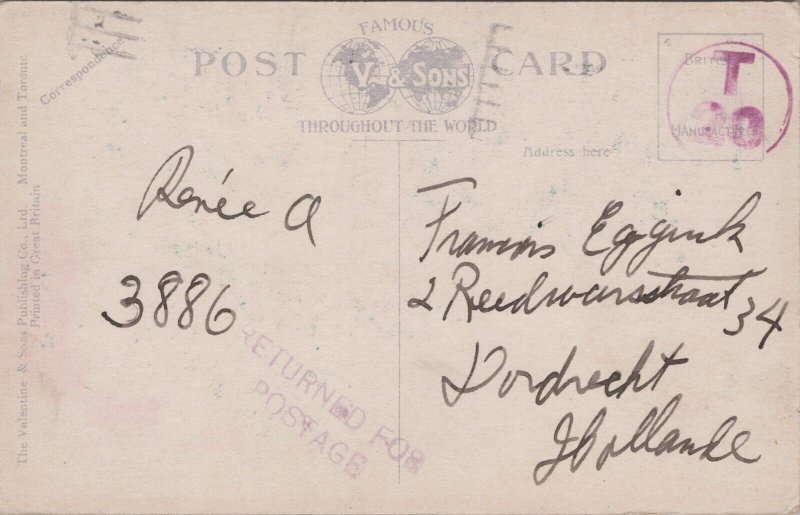 FAMOUS
POST CARD
V. & SONS
THROUGHOUT THE WORLD
Correspondence
Address here
T
20
The Valentine & Sons Publishing Co., Ltd. Montreal and Toronto
Printed in Great Britain
Renée A
3886
RETURNED FOR
POSTAGE
François Eggink
2 Reedwarsstraat 34
Dordrecht
Hollande